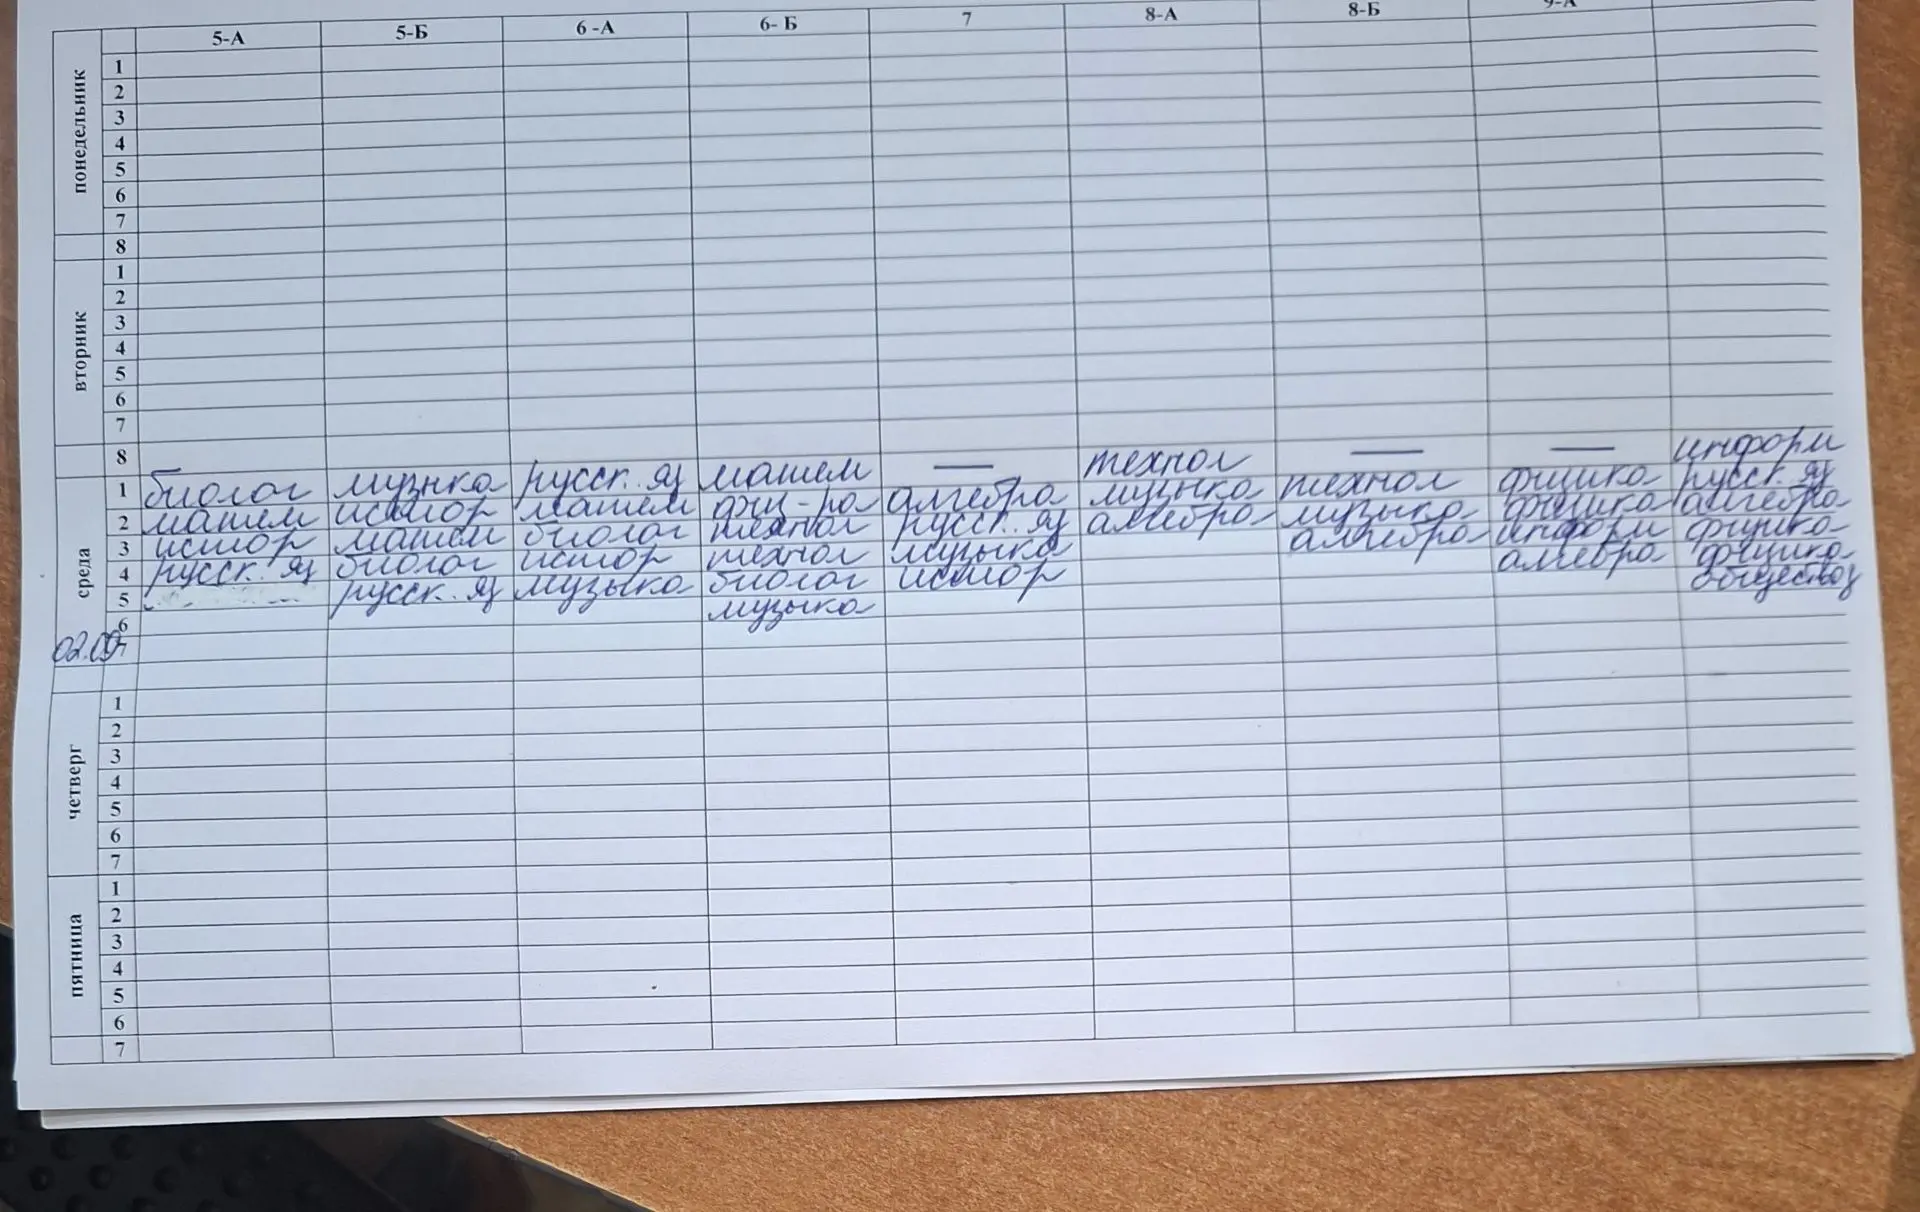 5-А 5-Б 6 -А 6- Б 7 8-А 8-Б 9-А
понедельник
1
2
3
4
5
6
7
8
вторник
1
2
3
4
5
6
7
8
среда
биолог музыка русск. яз матем — технол — — информ
1 матем истор матем физ-ра алгебра музыка технол физика русск. яз
2 истор матем биолог технол русск. яз алгебра музыка физика алгебра
3 русск. яз биолог истор технол музыка алгебра информ физика
4 русск. яз музыка биолог истор алгебра физика
5 музыка обществоз
6
02.09 7
четверг
1
2
3
4
5
6
7
пятница
1
2
3
4
5
6
7